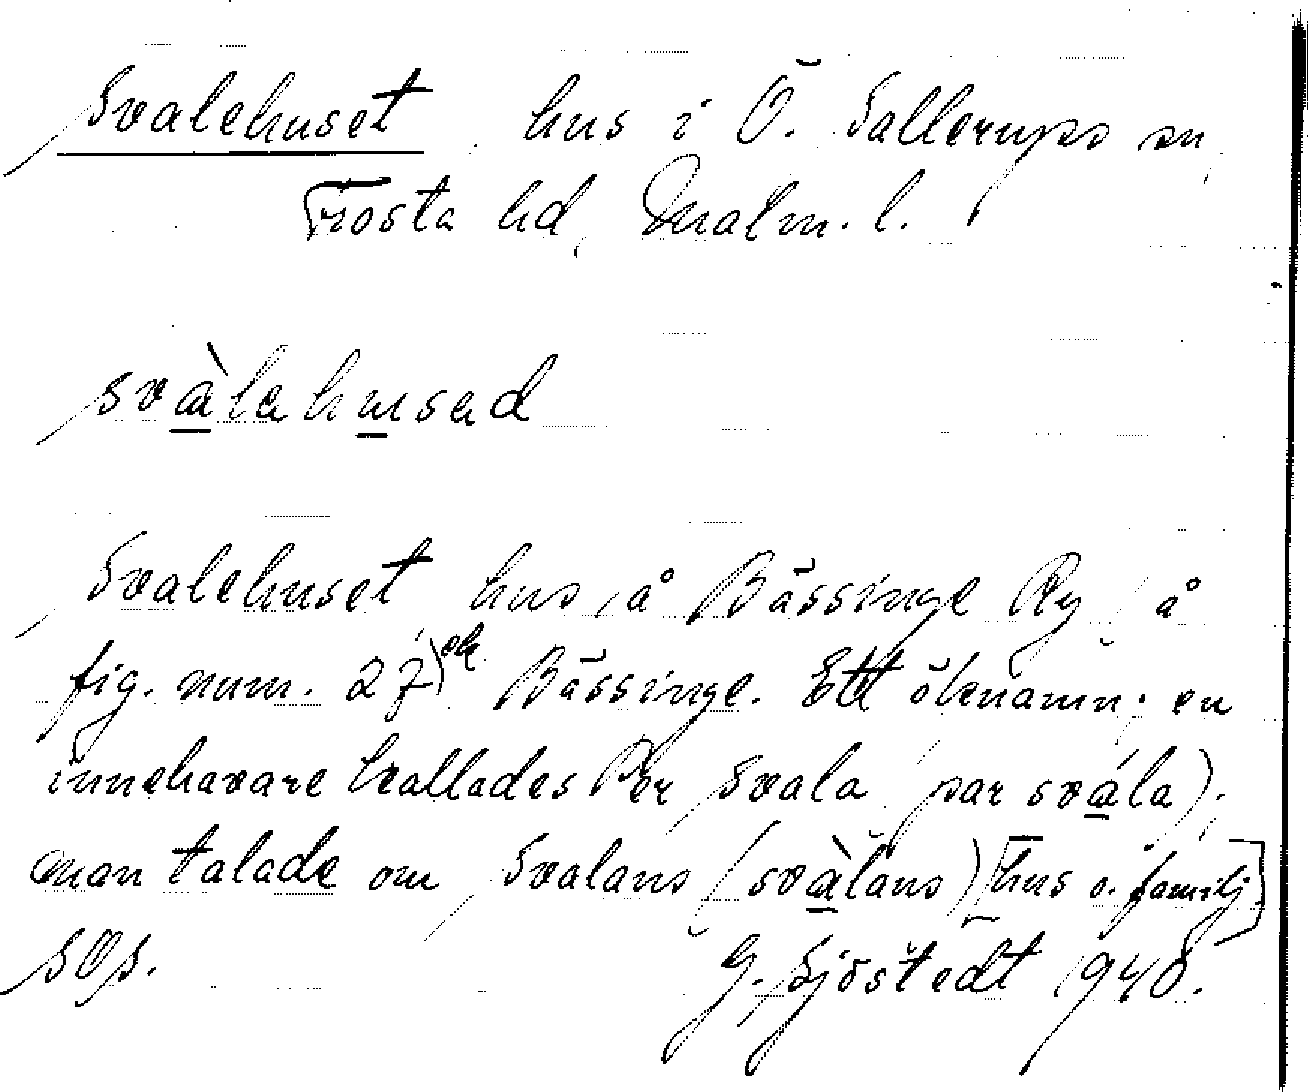 Svalehuset, hus i Ö. Sallerups sn,
Frosta hd, Malm. l.
svàlahusad
Svalehuset hus, å Bässinge Ry, å
fig. num. 27) Bässinge. Ett öknamn; en
innehavare kallades Per Svala (par svála);
man talade om Svalans (svàlans) [hus o. familj]
sOp.
G. Sjöstedt 1940.